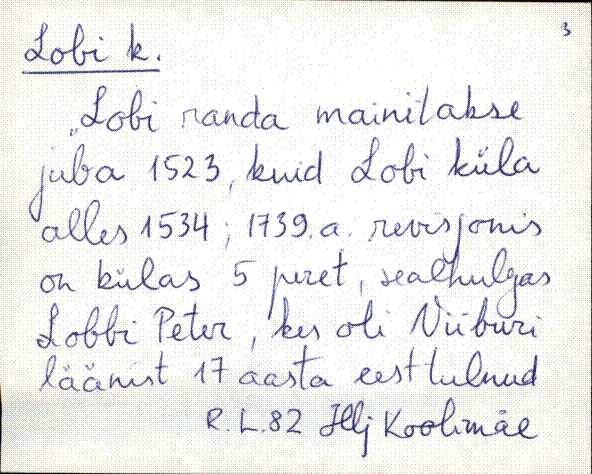 3
Lobi k.
„Lobi randa mainitakse
juba 1523, kuid Lobi küla
alles 1534; 1739.a. revisjonis
on külas 5 peret, sealhulgas
Lobbi Peter, kes oli Viiburi
läänist 17 aasta eest tulnud
R.L.82 Illj Koolimäe